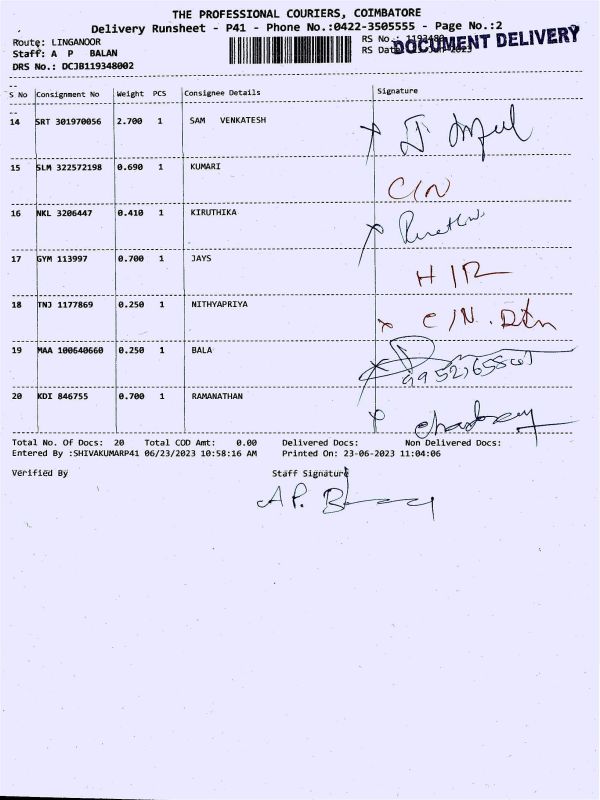 THE PROFESSIONAL COURIERS, COIMBATORE
Delivery Runsheet - P41 - Phone No.:0422-3505555 - Page No.:2
Route: LINGANOOR
RS No.:
Staff: A P BALAN
RS Date
DOCUMENT DELIVERY
DRS No.: DCJB119348002
S No Consignment No Weight PCS Consignee Details Signature
14 SRT 301970056 2.700 1 SAM VENKATESH
15 SLM 322572198 0.690 1 KUMARI
C/N
16 NKL 3206447 0.410 1 KIRUTHIKA
17 GYM 113997 0.700 1 JAYS
18 TNJ 1177869 0.250 1 NITHYAPRIYA
C/N.
19 MAA 100640660 0.250 1 BALA
20 KDI 846755 0.700 1 RAMANATHAN
Total No. Of Docs: 20 Total COD Amt: 0.00 Delivered Docs: Non Delivered Docs:
Entered By :SHIVAKUMARP41 06/23/2023 10:58:16 AM Printed On: 23-06-2023 11:04:06
Verified By Staff Signature
A P.